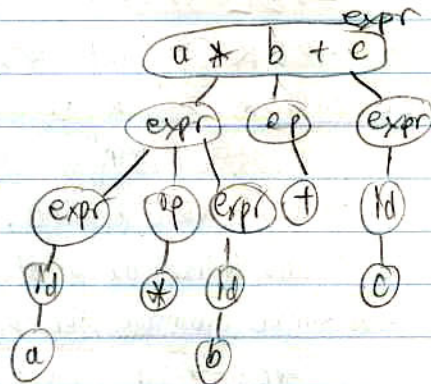 expr
a * b + c
expr op expr
expr op expr + id
id * id c
a b